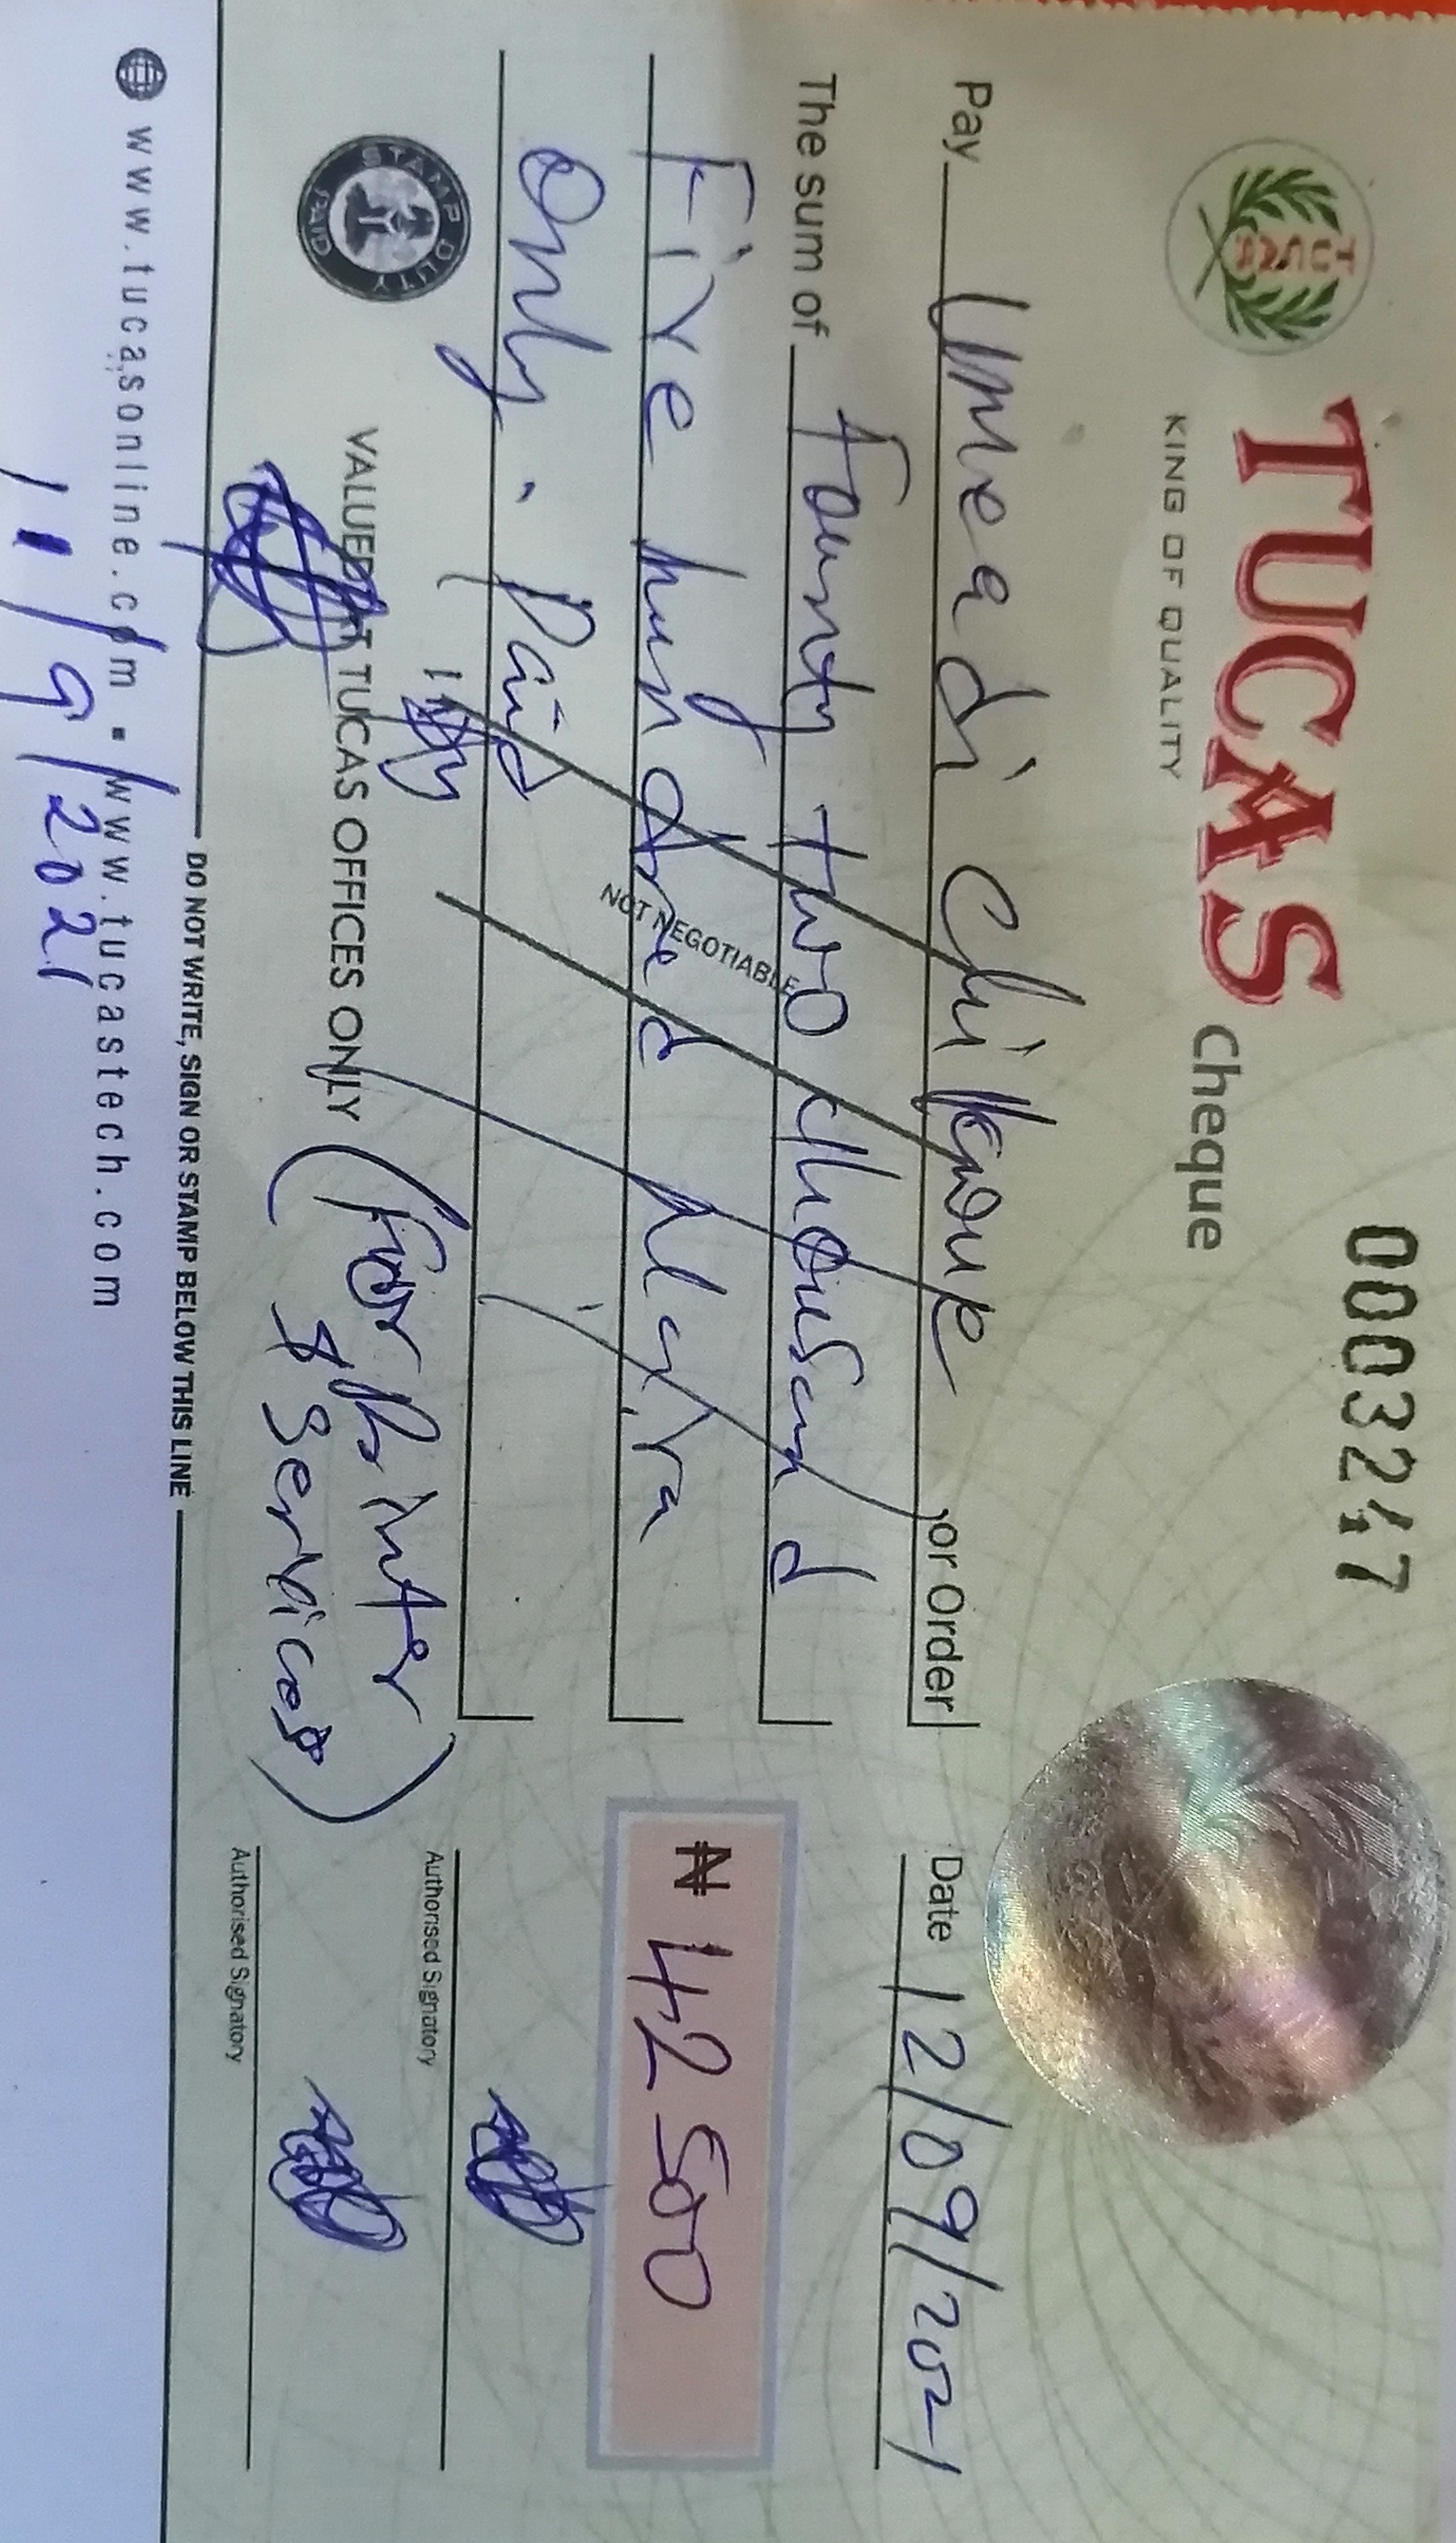 0003247
TUCAS cheque
KING OF QUALITY
TUCAS
Pay Umeadi Chikwue, or Order
Date 12/09/2021
The sum of Fourty two thousand
Five hundred Naira
₦ 42500
only. Paid
NOT NEGOTIABLE
STAMP DUTY PAID
VALUED AT TUCAS OFFICES ONLY
(For Printer
& Services)
Authorised Signatory
Authorised Signatory
DO NOT WRITE, SIGN OR STAMP BELOW THIS LINE
www.tucasonline.com ▪ www.tucastech.com
11/9/2021